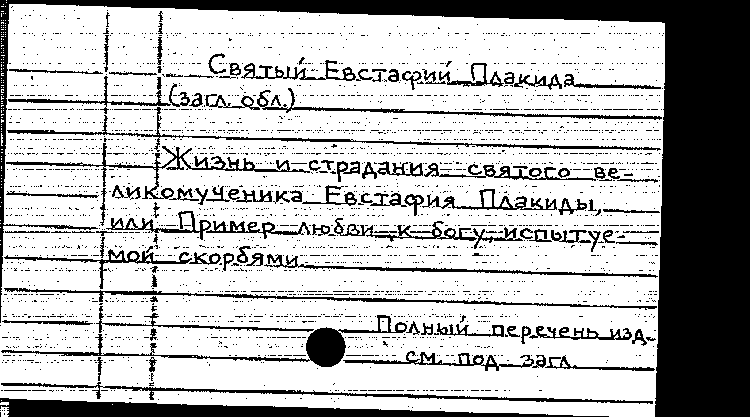 Святый Евстафий Плакида
(загл. обл.)
Жизнь и страдания святого ве-
ликомученика Евстафия Плакиды,
или Пример любви к богу, испытуе-
мой скорбями.
Полный перечень изд.
см. под загл.